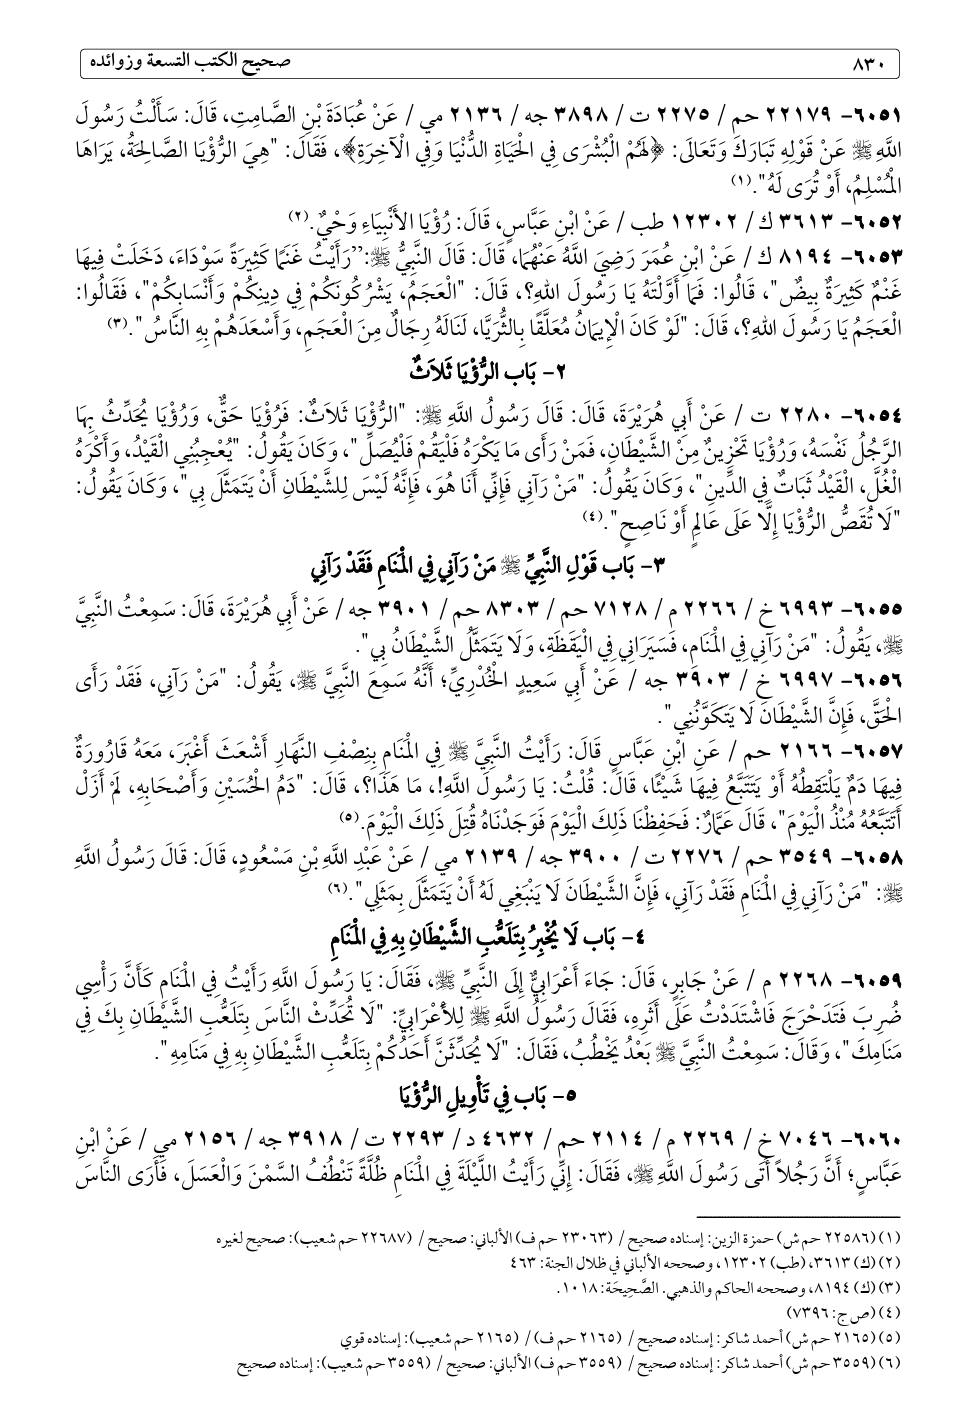 ٨٣٠ صحيح الكتب التسعة وزوائده
٦٠٥١- ٢٢١٧٩ حم / ٢٢٧٥ ت / ٣٨٩٨ جه / ٢١٣٦ مي / عَنْ عُبَادَةَ بْنِ الصَّامِتِ، قَالَ: سَأَلْتُ رَسُولَ
اللَّهِ ﷺ عَنْ قَوْلِهِ تَبَارَكَ وَتَعَالَى: ﴿لَهُمُ الْبُشْرَى فِي الْحَيَاةِ الدُّنْيَا وَفِي الْآخِرَةِ﴾، فَقَالَ: "هِيَ الرُّؤْيَا الصَّالِحَةُ، يَرَاهَا
الْمُسْلِمُ، أَوْ تُرَى لَهُ".(١)
٦٠٥٢- ٣٦١٣ ك/ ١٢٣٠٢ طب / عَنْ ابْنِ عَبَّاسٍ، قَالَ: رُؤْيَا الأَنْبِيَاءِ وَحْيٌ.(٢)
٦٠٥٣- ٨١٩٤ ك / عَنْ ابْنِ عُمَرَ رَضِيَ اللَّهُ عَنْهُمَا، قَالَ: قَالَ النَّبِيُّ ﷺ:"رَأَيْتُ غَنَمًا كَثِيرَةً سَوْدَاءَ، دَخَلَتْ فِيهَا
غَنَمٌ كَثِيرَةٌ بِيضٌ"، قَالُوا: فَمَا أَوَّلْتَهُ يَا رَسُولَ اللهِ؟، قَالَ: "الْعَجَمُ، يَشْرُكُونَكُمْ فِي دِينِكُمْ وَأَنْسَابِكُمْ"، فَقَالُوا:
الْعَجَمُ يَا رَسُولَ اللهِ؟، قَالَ: "لَوْ كَانَ الْإِيمَانُ مُعَلَّقًا بِالثُّرَيَّا، لَنَالَهُ رِجَالٌ مِنَ الْعَجَمِ، وَأَسْعَدَهُمْ بِهِ النَّاسُ".(٣)
٢- بَاب الرُّؤْيَا ثَلَاثٌ
٦٠٥٤- ٢٢٨٠ ت / عَنْ أَبِي هُرَيْرَةَ، قَالَ: قَالَ رَسُولُ اللَّهِ ﷺ: "الرُّؤْيَا ثَلَاثٌ: فَرُؤْيَا حَقٌّ، وَرُؤْيَا يُحَدِّثُ بِهَا
الرَّجُلُ نَفْسَهُ، وَرُؤْيَا تَحْزِينٌ مِنْ الشَّيْطَانِ، فَمَنْ رَأَى مَا يَكْرَهُ فَلْيَقُمْ فَلْيُصَلِّ"، وَكَانَ يَقُولُ: "يُعْجِبُنِي الْقَيْدُ، وَأَكْرَهُ
الْغُلَّ، الْقَيْدُ ثَبَاتٌ فِي الدِّينِ"، وَكَانَ يَقُولُ: "مَنْ رَآنِي فَإِنِّي أَنَا هُوَ، فَإِنَّهُ لَيْسَ لِلشَّيْطَانِ أَنْ يَتَمَثَّلَ بِي"، وَكَانَ يَقُولُ:
"لَا تُقَصُّ الرُّؤْيَا إِلَّا عَلَى عَالِمٍ أَوْ نَاصِحٍ".(٤)
٣- بَاب قَوْلِ النَّبِيِّ ﷺ مَنْ رَآنِي فِي الْمَنَامِ فَقَدْ رَآنِي
٦٠٥٥- ٦٩٩٣ خ / ٢٢٦٦ م/ ٧١٢٨ حم / ٨٣٠٣ حم/ ٣٩٠١ جه / عَنْ أَبِي هُرَيْرَةَ، قَالَ: سَمِعْتُ النَّبِيَّ
ﷺ، يَقُولُ: "مَنْ رَآنِي فِي الْمَنَامِ، فَسَيَرَانِي فِي الْيَقَظَةِ، وَلَا يَتَمَثَّلُ الشَّيْطَانُ بِي".
٦٠٥٦- ٦٩٩٧ خ / ٣٩٠٣ جه / عَنْ أَبِي سَعِيدٍ الْخُدْرِيِّ؛ أَنَّهُ سَمِعَ النَّبِيَّ ﷺ، يَقُولُ: "مَنْ رَآنِي، فَقَدْ رَأَى
الْحَقَّ، فَإِنَّ الشَّيْطَانَ لَا يَتَكَوَّنُنِي".
٦٠٥٧- ٢١٦٦ حم / عَنِ ابْنِ عَبَّاسٍ قَالَ: رَأَيْتُ النَّبِيَّ ﷺ فِي الْمَنَامِ بِنِصْفِ النَّهَارِ أَشْعَثَ أَغْبَرَ، مَعَهُ قَارُورَةٌ
فِيهَا دَمٌ يَلْتَقِطُهُ أَوْ يَتَتَبَّعُ فِيهَا شَيْئًا، قَالَ: قُلْتُ: يَا رَسُولَ اللَّهِ!، مَا هَذَا؟، قَالَ: "دَمُ الْحُسَيْنِ وَأَصْحَابِهِ، لَمْ أَزَلْ
أَتَتَبَّعُهُ مُنْذُ الْيَوْمَ"، قَالَ عَمَّارٌ: فَحَفِظْنَا ذَلِكَ الْيَوْمَ فَوَجَدْنَاهُ قُتِلَ ذَلِكَ الْيَوْمَ.(٥)
٦٠٥٨- ٣٥٤٩ حم / ٢٢٧٦ ت / ٣٩٠٠ جه / ٢١٣٩ مي / عَنْ عَبْدِ اللَّهِ بْنِ مَسْعُودٍ، قَالَ: قَالَ رَسُولُ اللَّهِ
ﷺ: "مَنْ رَآنِي فِي الْمَنَامِ فَقَدْ رَآنِي، فَإِنَّ الشَّيْطَانَ لَا يَنْبَغِي لَهُ أَنْ يَتَمَثَّلَ بِمَثَلِي".(٦)
٤- بَاب لَا يُخْبِرُ بِتَلَعُّبِ الشَّيْطَانِ بِهِ فِي الْمَنَامِ
٦٠٥٩- ٢٢٦٨ م / عَنْ جَابِرٍ، قَالَ: جَاءَ أَعْرَابِيٌّ إِلَى النَّبِيِّ ﷺ، فَقَالَ: يَا رَسُولَ اللَّهِ رَأَيْتُ فِي الْمَنَامِ كَأَنَّ رَأْسِي
ضُرِبَ فَتَدَحْرَجَ فَاشْتَدَدْتُ عَلَى أَثَرِهِ، فَقَالَ رَسُولُ اللَّهِ ﷺ لِلأَعْرَابِيِّ: "لَا تُحَدِّثْ النَّاسَ بِتَلَعُّبِ الشَّيْطَانِ بِكَ فِي
مَنَامِكَ"، وَقَالَ: سَمِعْتُ النَّبِيَّ ﷺ بَعْدُ يَخْطُبُ، فَقَالَ: "لَا يُحَدِّثَنَّ أَحَدُكُمْ بِتَلَعُّبِ الشَّيْطَانِ بِهِ فِي مَنَامِهِ".
٥- بَاب فِي تَأْوِيلِ الرُّؤْيَا
٦٠٦٠- ٧٠٤٦ خ / ٢٢٦٩ م/ ٢١١٤ حم/ ٤٦٣٢ د/ ٢٢٩٣ ت / ٣٩١٨ جه / ٢١٥٦ مي / عَنْ ابْنِ
عَبَّاسٍ؛ أَنَّ رَجُلاً أَتَى رَسُولَ اللَّهِ ﷺ، فَقَالَ: إِنِّي رَأَيْتُ اللَّيْلَةَ فِي الْمَنَامِ ظُلَّةً تَنْطُفُ السَّمْنَ وَالْعَسَلَ، فَأَرَى النَّاسَ
(١) (٢٢٥٨٦ حم ش) حمزة الزين: إسناده صحيح / (٢٣٠٦٣ حم ف) الألباني: صحيح / (٢٢٦٨٧ حم شعيب): صحيح لغيره
(٢) (ك) ٣٦١٣، (طب) ١٢٣٠٢، وصححه الألباني في ظلال الجنة: ٤٦٣
(٣) (ك) ٨١٩٤، وصححه الحاكم والذهبي. الصَّحِيحَة: ١٠١٨.
(٤) (ص ج: ٧٣٩٦)
(٥) (٢١٦٥ حم ش) أحمد شاكر: إسناده صحيح / (٢١٦٥ حم ف) / (٢١٦٥ حم شعيب): إسناده قوي
(٦) (٣٥٥٩ حم ش) أحمد شاكر: إسناده صحيح / (٣٥٥٩ حم ف) الألباني: صحيح / (٣٥٥٩ حم شعيب): إسناده صحيح